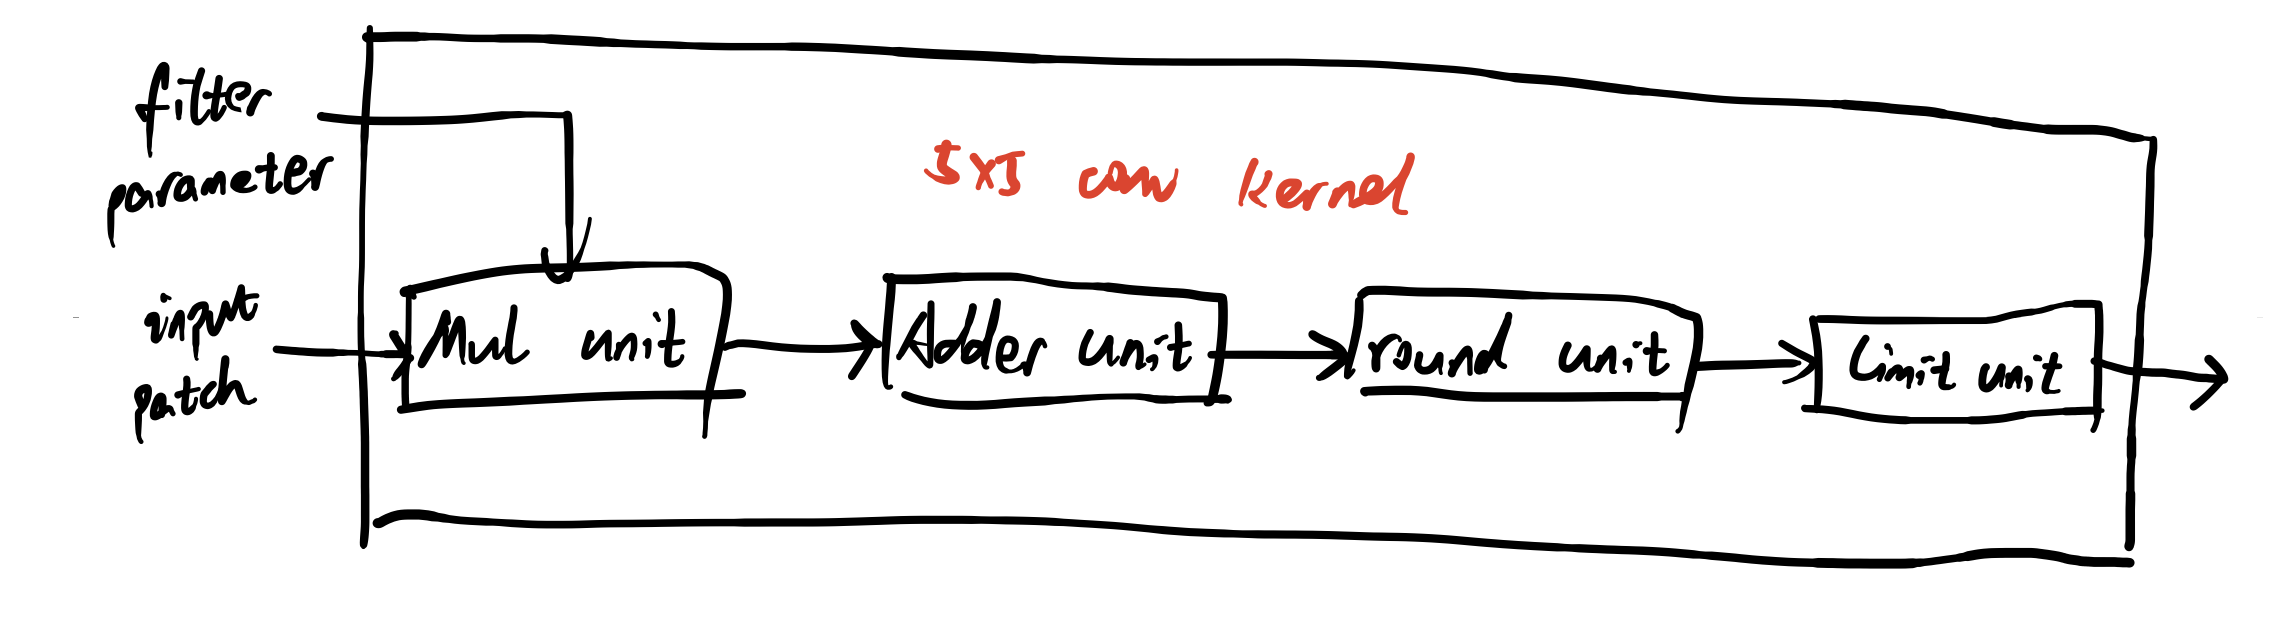 filter
parameter
5x5 conv kernel
input
patch
Mul unit
Adder unit
round unit
Limit unit